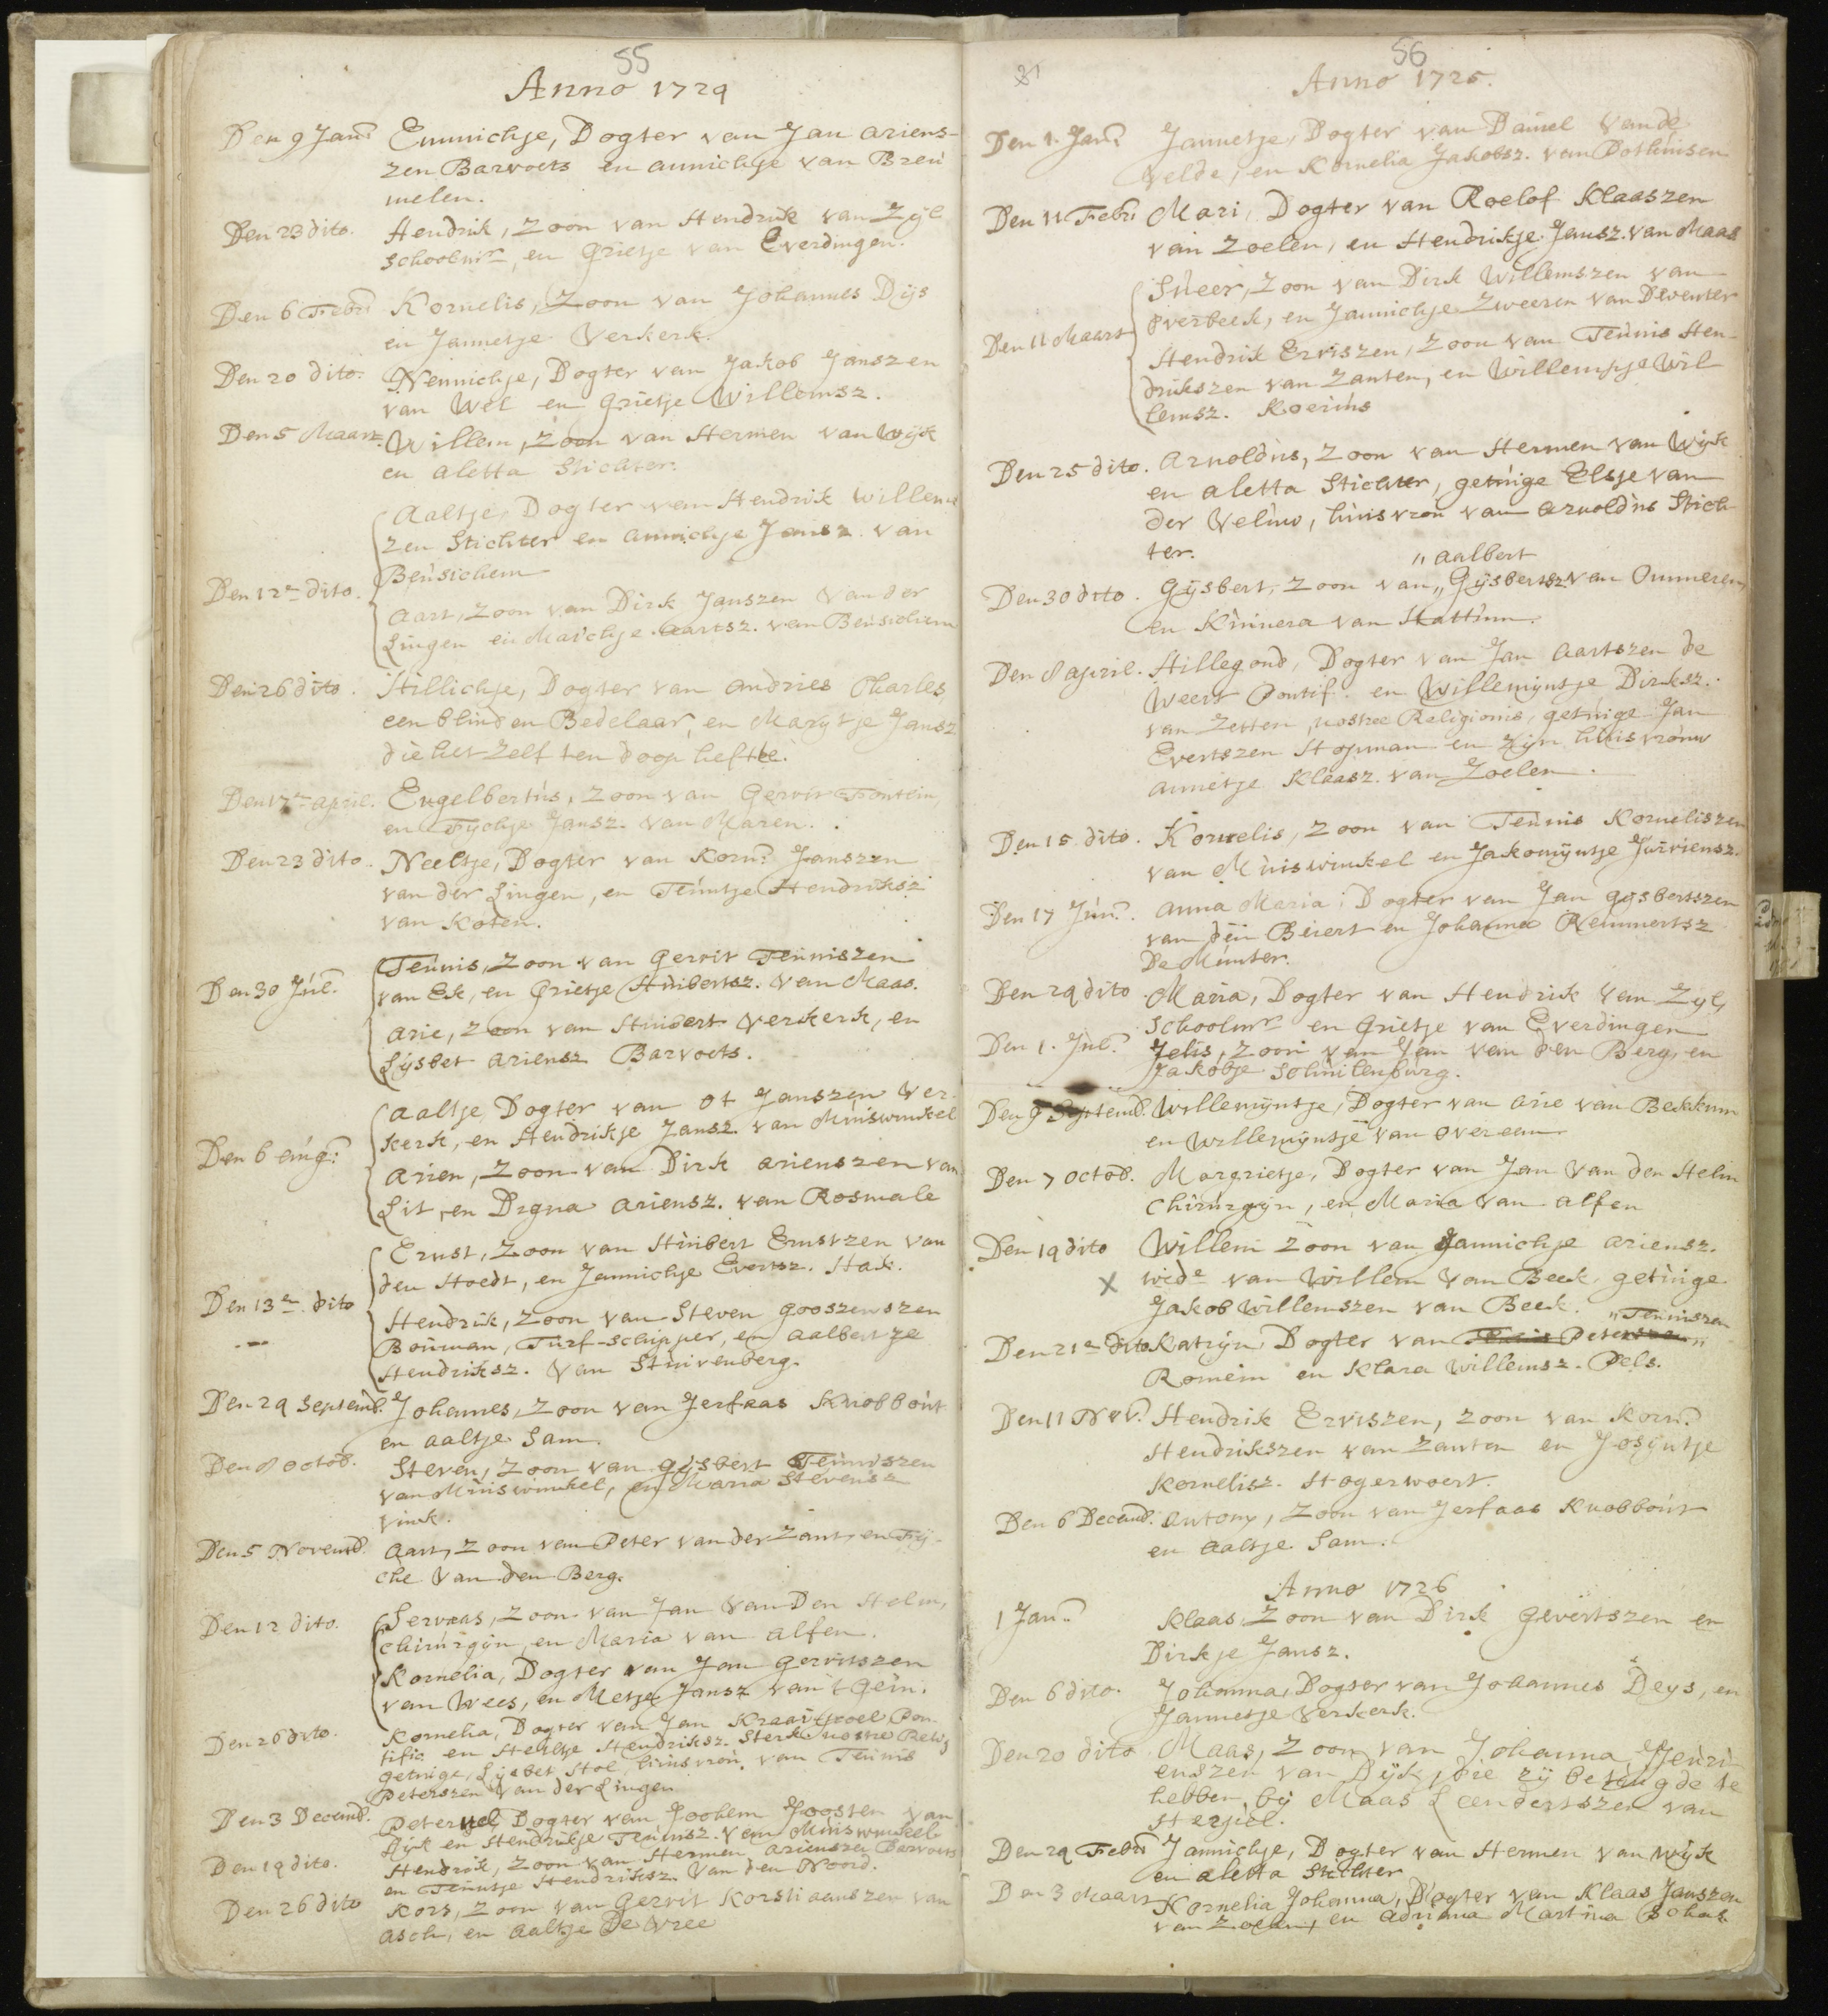 55
Anno 1724
Den 9 Jan: Emmichje, Dogter van Jan Ariens-
zen Barvoets en Annichje van Breu
melen.
Den 23 dito. Hendrik, Zoon van Hendrik van Zijl
Schoolmr, en Grietje van Everdingen.
Den 6 Febr: Kornelis, Zoon van Johannes Dijs
en Jannetje Verkerk.
Den 20 dito. Nennichje, Dogter van Jakob Janszen
van Wel en Grietje Willemsz.
Den 5 Maart. Willem, Zoon van Hermen van Wijk
en Aletta Stichter.
Aaltje, Dogter van Hendrik Willem
zen Stichter en Annichje Jansz. van
Beusichem
Den 12e dito.
Aart, Zoon van Dirk Janszen van der
Lingen en Maichje Aartsz. van Beusichem
Den 26 dito. Hillichje, Dogter van Andries Charles,
een blinden Bedelaar, en Marytje Jansz
die het zelf ten doop hefte.
Den 17e April. Engelbertus, Zoon van Gerrit Fontein,
en Fychje Jansz. van Maren.
Den 23 dito. Neeltje, Dogter van Korn: Janszen
van der Lingen, en Teuntje Hendriksz
van Koten.
Den 30 Jul: Teunis, Zoon van Gerrit Teuniszen
van Ek, en Grietje Huibertsz. van Maas.
Arie, Zoon van Huibert Verkerk, en
Lijsbet Ariensz Barvoets.
Aaltje, Dogter van Ot Janszen Ver
kerk, en Hendrikje Jansz. van Muiswinkel
Den 6 Aug:
Arien, Zoon van Dirk Arienszen van
Lit, en Digna Ariensz. van Rosmale
Ernst, Zoon van Huibert Ernstzen van
den Hoedt, en Jannichje Evertsz. Hak.
Den 13e dito
Hendrik, Zoon van Steven Gooszenszen
Bouman, Turf-schipper, en Aalbertje
Hendriksz. van Stuivenberg.
Den 24 Septemb. Johannes, Zoon van Jerfaas Knobbout
en Aaltje Sam.
Den 8 Octob. Steven, Zoon van Gijsbert Teuniszen
van Muiswinkel, en Maria Stevensz
Vink.
Den 5 Novemb. Aart, Zoon van Peter van der Zant, en Fij-
che van den Berg.
Den 12 dito. Servaas, Zoon van Jan van den Helm,
Chirurgijn, en Maria van Alfen.
Kornelia, Dogter van Jan Gerritszen
van Wees, en Metje Jansz van 't Gein.
Den 26 dito. Kornelia, Dogter van Jan Kraaitpoel Pon-
tific en Heiltje Hendriksz. Sterk nostrae Relig
getuige, Lijsbet Stoe, huisvrou van Teunis
Peterszen van der Lingen
Den 3 Decemb. Peternel, Dogter van Jochem Joosten van
Dijk en Hendrikje Teunisz. van Muiswinkel
Den 19 dito. Hendrik, Zoon van Hermen Arienszen Barvoets
en Teuntje Hendriksz. van den Noord.
Den 26 dito Kors, Zoon van Gerrit Korstiaanszen van
Asch, en Aaltje De Vree
56
Anno 1725.
Den 1. Jan: Jannetje, Dogter van Daniel van de
Velde, en Kornelia Jakobsz. van Dothuisen
Den 11 Febr: Mari, Dogter van Roelof Klaaszen
van Zoelen, en Hendrikje Jansz. van Maas
Sweer, Zoon van Dirk Willemszen van
Overbeek, en Jannichje Zweeren van Deventer
Den 11 Maart
Hendrik Erviszen, Zoon van Teunis Hen-
drikszen van Zanten, en Willempje Wil
lemsz. Koeruis
Den 25 dito. Arnoldus, Zoon van Hermen van Wijk
en Aletta Stichter, getuige Elsje van
der Veluw, huisvrou van Arnoldus Stich
ter.
„ Aalbert
Den 30 dito. Gijsbert, Zoon van „ Gijsbertsz van Ommeren,
en Kunnera van Hattum.
Den 8 April. Hillegond, Dogter van Jan Aartszen de
Weert Pontif. en Willemijntje Dirksz.
van Zetten, nostrae Religionis, getuige Jan
Evertszen Hopman en Zijn huisvrouw
Annetje Klaasz. van Zoelen.
Den 15 dito. Kornelis, Zoon van Teunis Korneliszen
van Muiswinkel en Jakomijntje Jurriensz.
Den 17 Jun: Anna Maria, Dogter van Jan Gijsbertszen
van den Beiert en Johanna Remmertsz
De Munter.
Den 24 dito Maria, Dogter van Hendrik van Zyl,
Schoolmr en Grietje van Everdingen
Den 1. Jul: Jelis, Zoon van Jan van den Berg, en
Jakobje Schuilenburg.
Den 9 Septemb. Willemijntje, Dogter van Arie van Bekkum
en Willemijntje van Overeem
Den 7 Octob. Margrietje, Dogter van Jan van den Helm
Chirurgijn, en Maria van Alfen
Den 14 dito Willem Zoon van Jannichje Ariensz.
X wede van Willem van Beek, getuige
Jakob Willemszen van Beek.
„ Teuniszen
Den 21e dito Katrijn, Dogter van Teunis Peterszen „
Romein en Klara Willemsz. Pels.
Den 11 Nov: Hendrik Erviszen, Zoon van Korn:
Hendrikszen van Zanten en Josijntje
Kornelisz. Hogerwoert.
Den 6 Decemb. Antony, Zoon van Jerfaas Knobbout
en Aaltje Sam.
Anno 1726
1 Jan: Klaas, Zoon van Dirk Gevertszen en
Dirkje Jansz.
Den 6 dito. Johanna, Dogter van Johannes Deys, en
Jannetje Verkerk.
Den 20 dito Maas, Zoon van Johanna Jeuri
enszen van Dijk, die zij betuigde te
hebben bij Maas Leendertszen van
Hersiel.
Den 24 Febr: Jannichje, Dogter van Hermen van Wijk
en Aletta Stichter
Den 3 Maart Kornelia Johanna, Dogter van Klaas Janszen
van Zoelen, en Adriana Martina Schas.